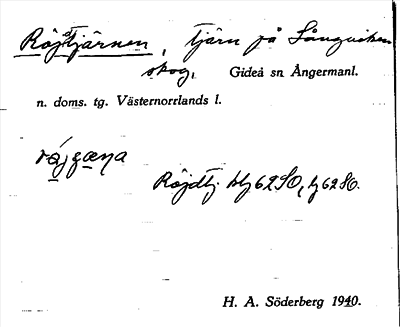 Röjdtjärnen, tjärn på Långviken
skog, Gideå sn Ångermanl.
n. doms. tg. Västernorrlands l.
Röjdtj.
H. A. Söderberg 1940.